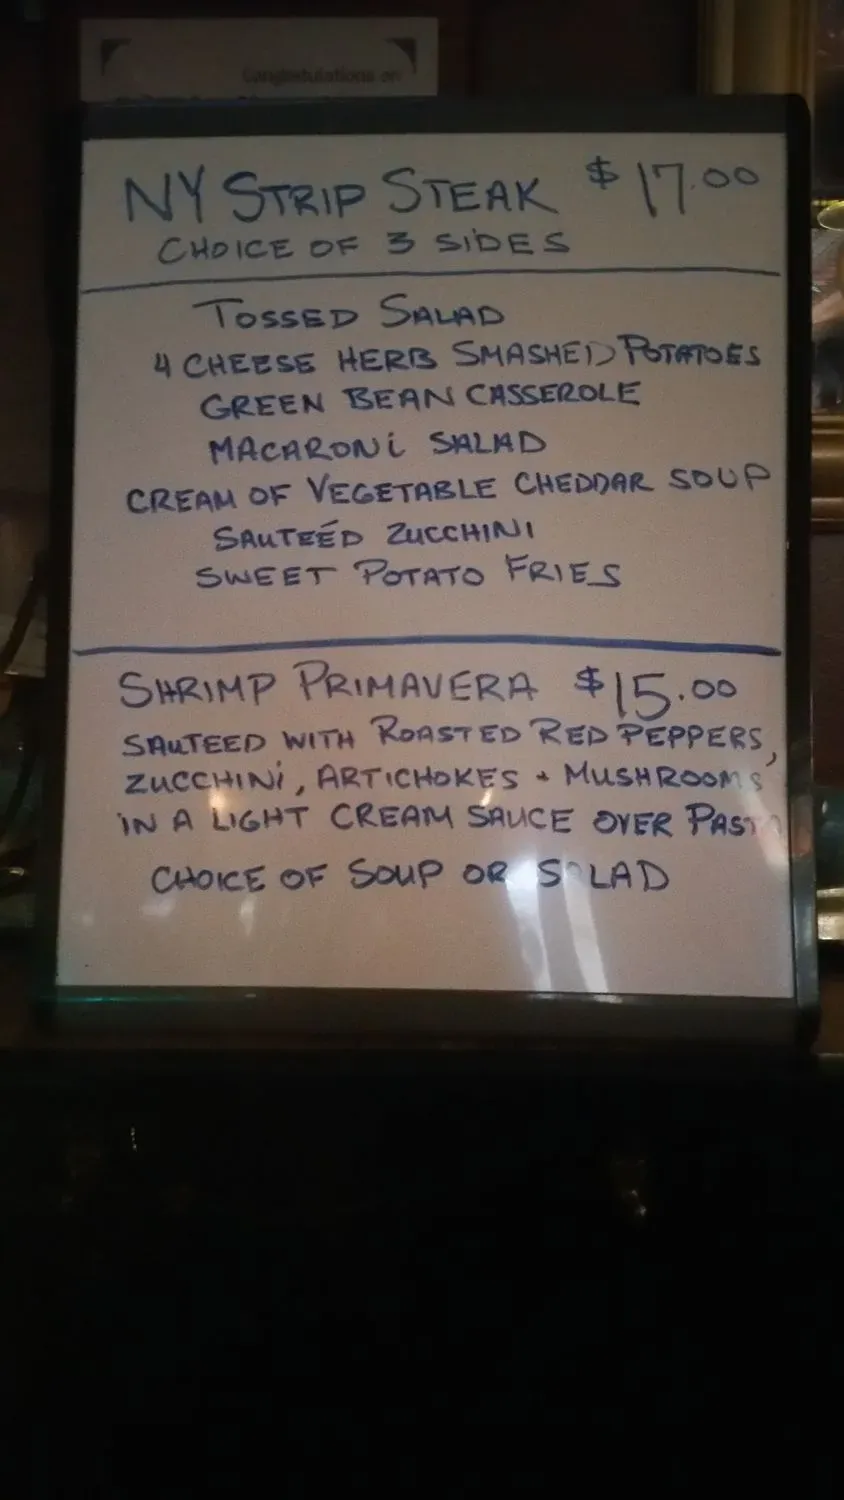 Congratulations on
NY STRIP STEAK $17.00
CHOICE OF 3 SIDES
TOSSED SALAD
4 CHEESE HERB SMASHED POTATOES
GREEN BEAN CASSEROLE
MACARONi SALAD
CREAM OF VEGETABLE CHEDDAR SOUP
SAUTEÉD ZUCCHINI
SWEET POTATO FRIES
SHRIMP PRIMAVERA $15.00
SAUTEED WITH ROASTED RED PEPPERS,
ZUCCHINi, ARTICHOKES + MUSHROOMS
IN A LIGHT CREAM SAUCE OVER PASTA
CHOICE OF SOUP OR SALAD